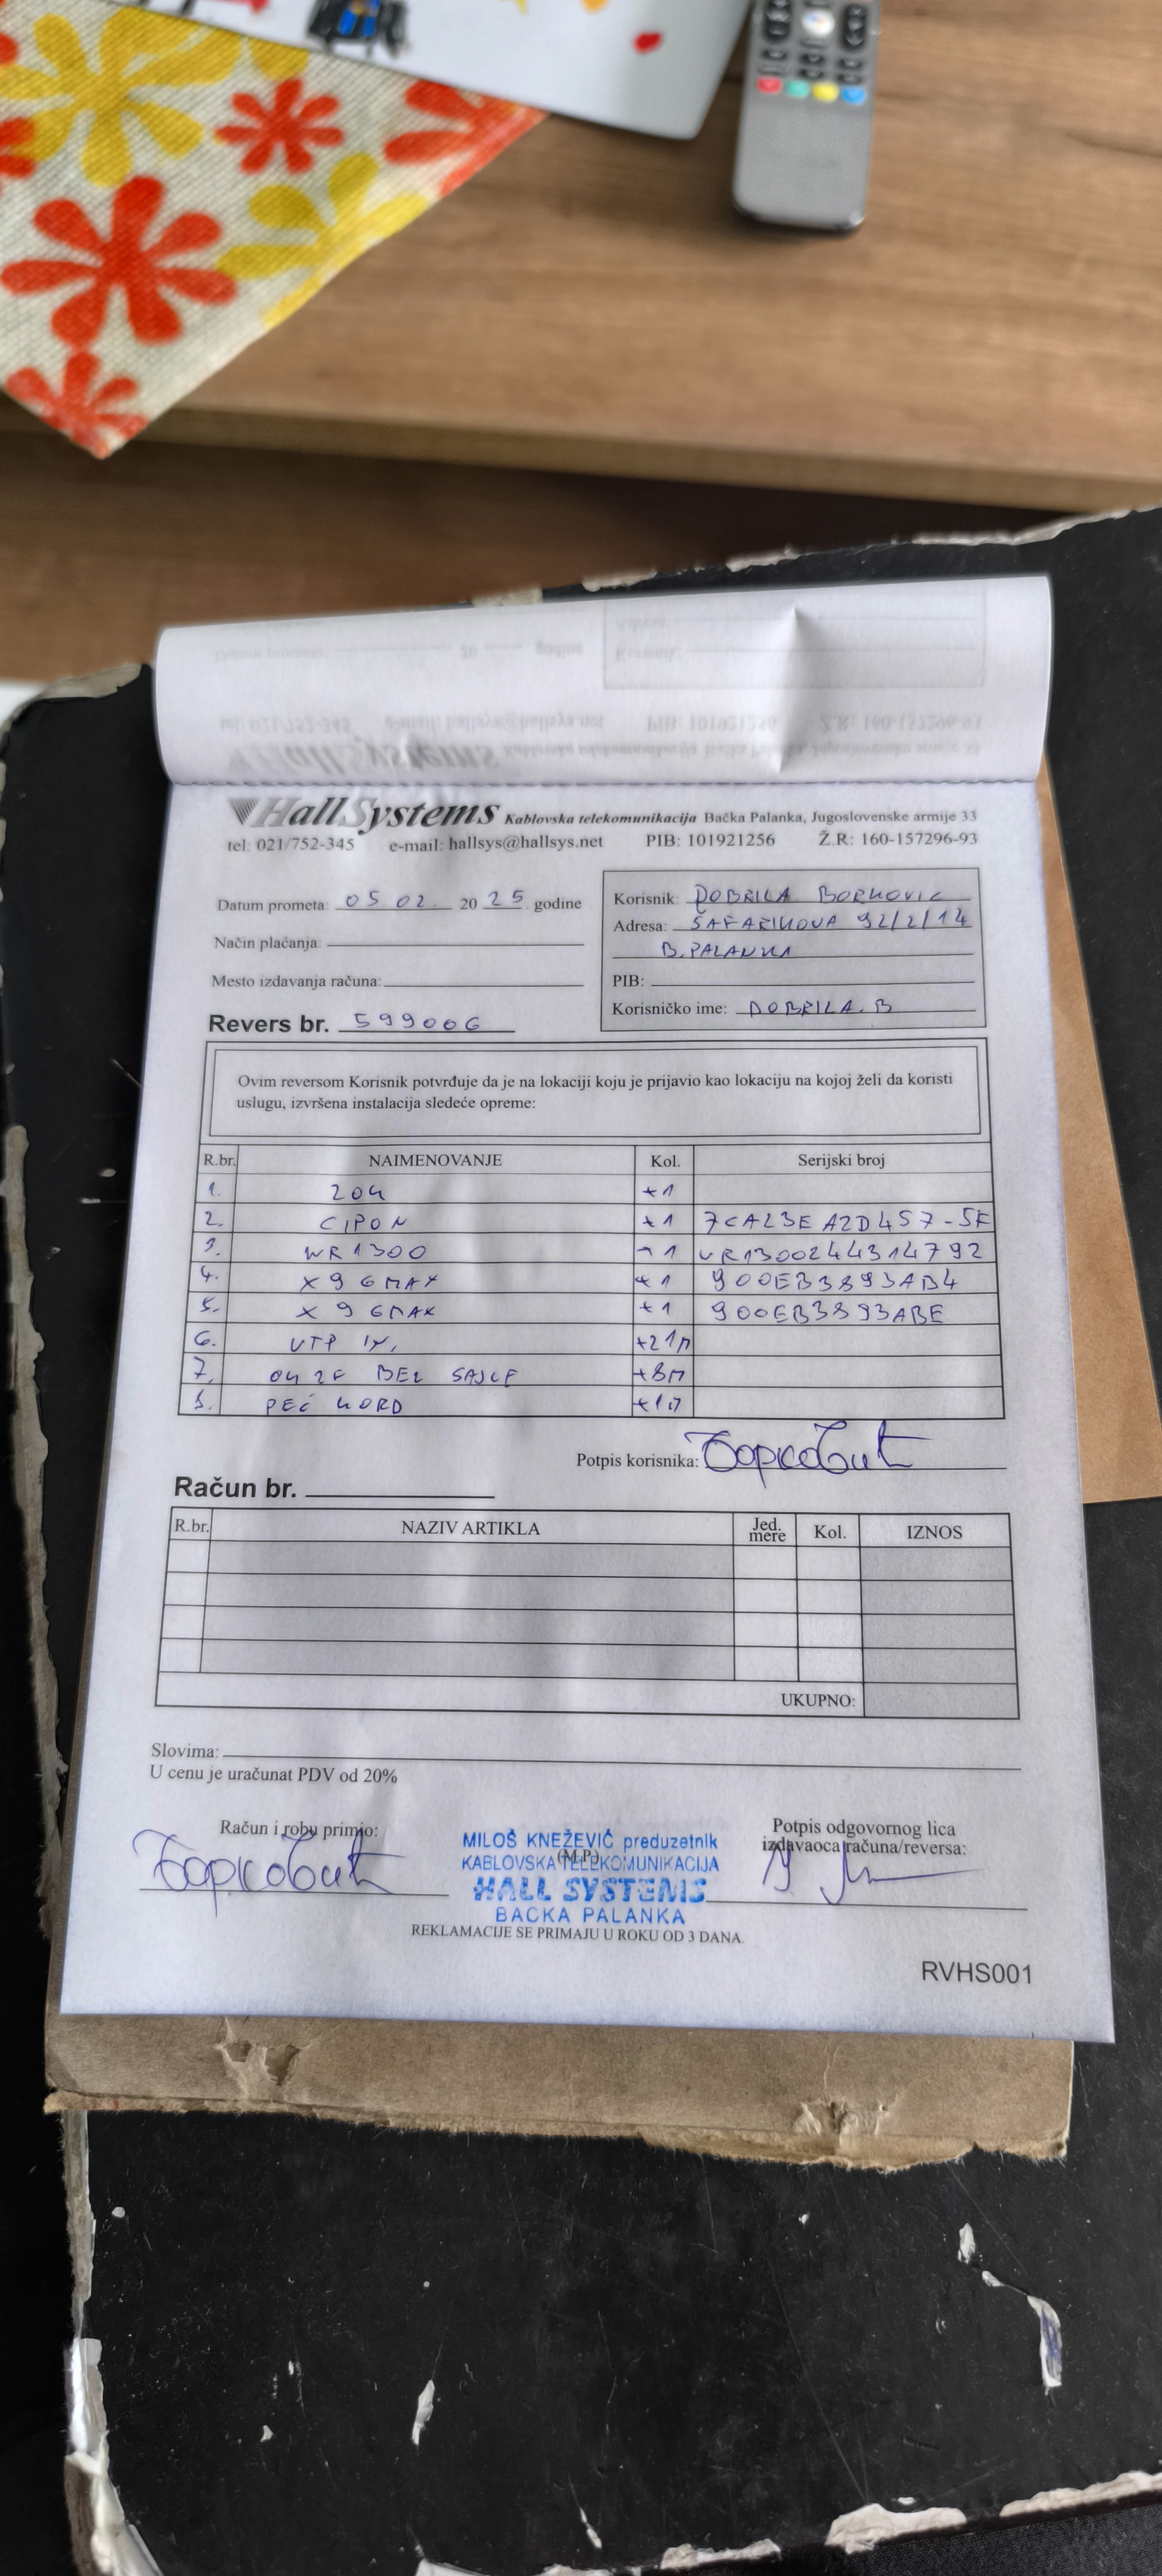 HallSystems Kablovska telekomunikacija Bačka Palanka, Jugoslovenske armije 33
tel: 021/752-345 e-mail: hallsys@hallsys.net PIB: 101921256 Ž.R: 160-157296-93
Datum prometa: 05.02. 20 25 godine
Način plaćanja:
Mesto izdavanja računa:
Revers br. 599006
Korisnik: DOBRILA BORKOVIC
Adresa: ŠAFARIKOVA 92/2/14
B. PALANKA
PIB:
Korisničko ime: DOBRILA.B
Ovim reversom Korisnik potvrđuje da je na lokaciji koju je prijavio kao lokaciju na kojoj želi da koristi
uslugu, izvršena instalacija sledeće opreme:
R.br. NAIMENOVANJE Kol. Serijski broj
1. ZOK +1
2. CIPON +1 7CA23EA2D457-5F
3. WR1300 -1 WR1300244314792
4. X9 6MAX +1 900EB3893AB4
5. X9 6MAX +1 900EB3893ABE
6. UTP +21m
7. OK 2F BEZ SAJLE +8m
8. PEČ KORD +1
Potpis korisnika: Борковић
Račun br.
R.br. NAZIV ARTIKLA Jed. mere Kol. IZNOS
UKUPNO:
Slovima:
U cenu je uračunat PDV od 20%
Račun i robu primio:
Борковић
MILOŠ KNEŽEVIĆ preduzetnik
(M.P.)
KABLOVSKA TELEKOMUNIKACIJA
HALL SYSTEMS
BACKA PALANKA
Potpis odgovornog lica
izdavaoca računa/reversa:
REKLAMACIJE SE PRIMAJU U ROKU OD 3 DANA.
RVHS001